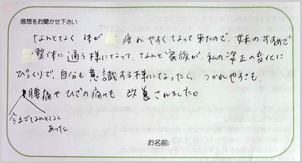 感想をお聞かせ下さい
なんとなく体が疲れやすくなって来たので、妹のすすめで
整体に通う様になって、なんと家族が私の姿正の変化に
びっくりで、自分も意識する様になったら、つかれやすさも、
腰痛やひざの痛みも改善されました。
今までなんとなく
あった
お名前: